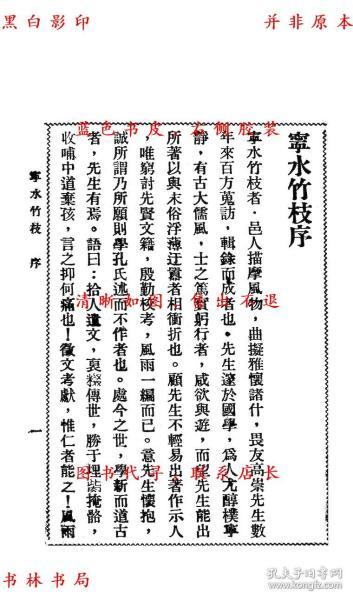 黑白影印
并非原本
蓝色书皮，右侧胶装
寧水竹枝序
寧水竹枝者，邑人描摩風物，曲擬雅懷諸什，畏友高崇先生數
年來百方蒐訪，輯錄而成者也。先生邃於國學，爲人尤醇樸寧
靜，有古大儒風，士之篤實躬行者，咸欲與遊，而望先生能出
所著以與末俗浮薄迂囂者相衝折也。顧先生不輕易出著作示人
，唯窮討先賢文籍，殷勤校考，風雨一編而已。意先生懷抱，
誠所謂乃所願則學孔氏述而不作者也。處今之世，學新而道古
者，先生有焉。語曰：拾人遺文，裒纂傳世，勝于埋骴掩骼，
收哺中道棄孩，言之抑何痛也！徵文考獻，惟仁者能之！風雨
寧水竹枝　序
一
清晰如图，售出不退
图书代寻，联系店长
书林书局
孔夫子旧书网